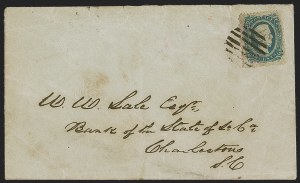 W. W. Sale Esqr,
Bank of the State of So. Ca
Charleston
S.C